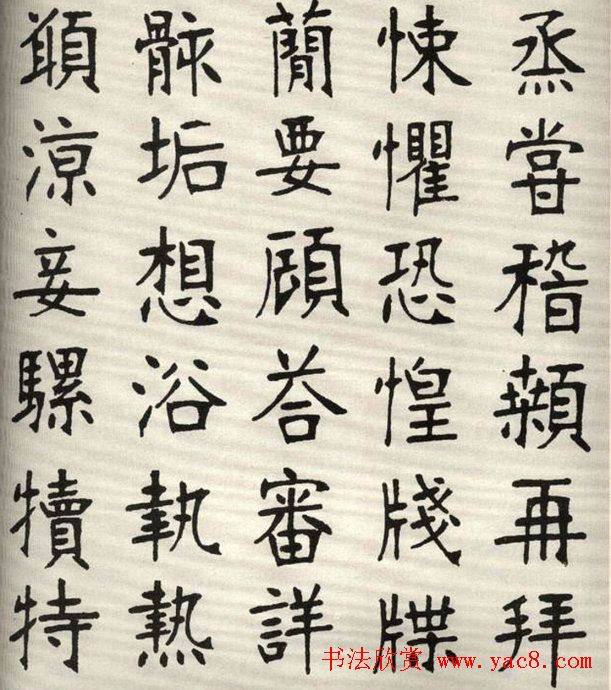 烝甞稽顙再拜
悚懼恐惶牋牒
蕳要頋荅審詳
骸垢想浴執熱
願涼妾騾犢特
书法欣赏 www.yac8.com